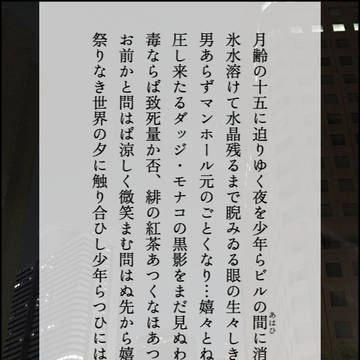 月齢の十五に迫りゆく夜を少年らビルの間に消
あはひ
氷水溶けて水晶残るまで睨みゐる眼の生々しき
男あらずマンホール元のごとくなり…嬉々とね
圧し来たるダッジ・モナコの黒影をまだ見ぬわ
毒ならば致死量か否、緋の紅茶あつくなほあつ
お前かと問はば涼しく微笑まむ問はぬ先から嬉
祭りなき世界の夕に触り合ひし少年らつひには